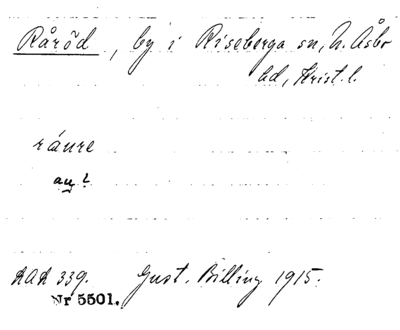 Råröd, by i Riseberga sn, N. Åsbo
hd, Krist. l.
ráure
au̯?
AOA 339. Gust. Billing 1915.
Nr 5501.